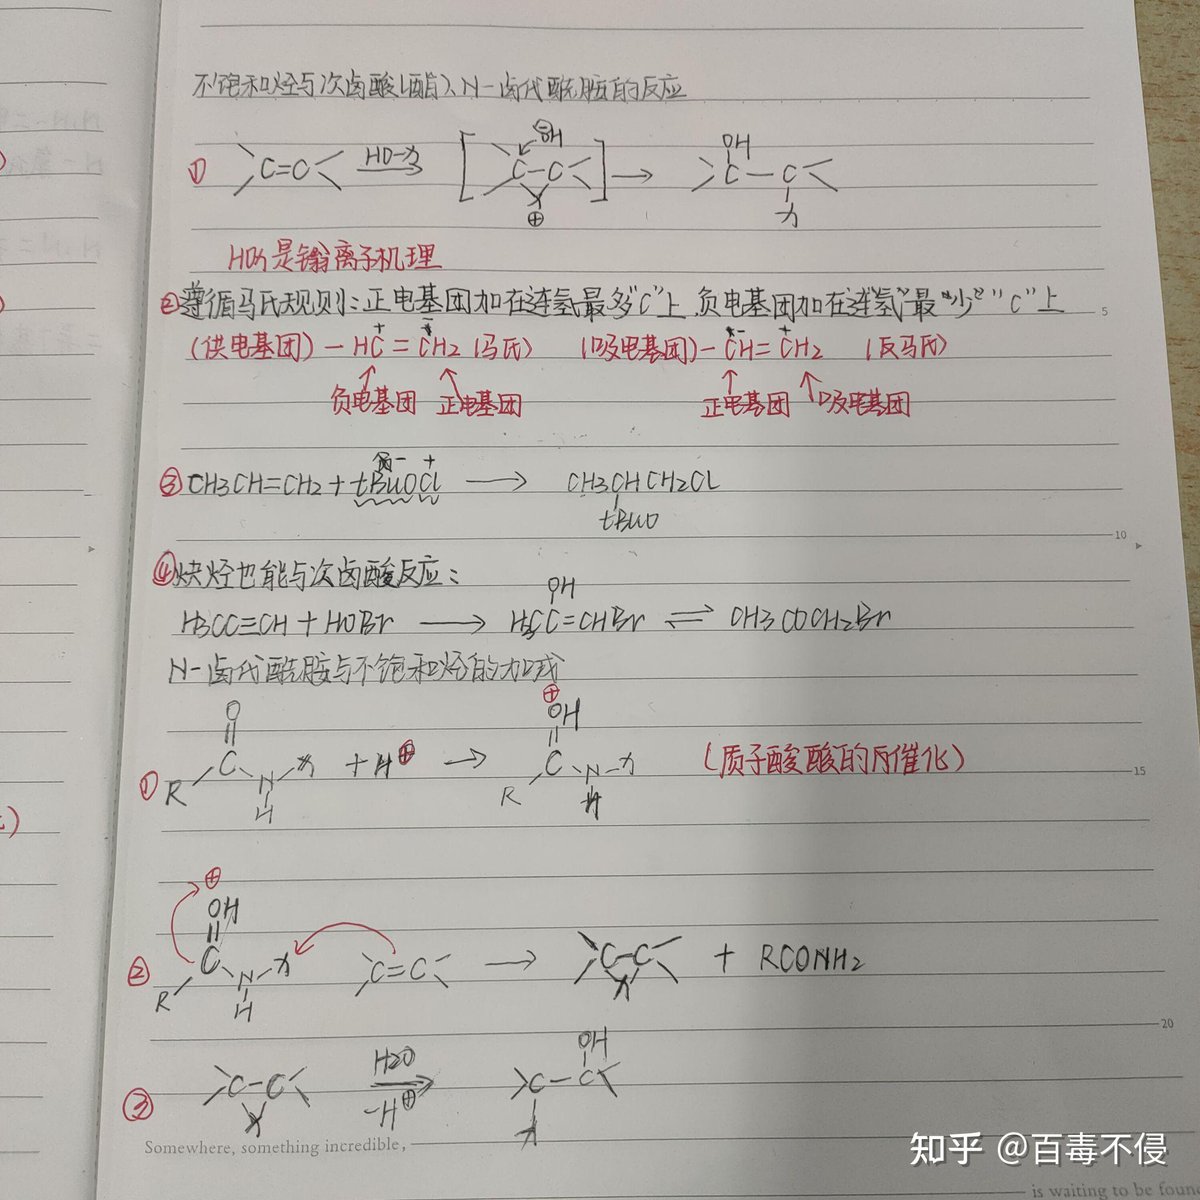 不饱和烃与次卤酸(酯)、N-卤代酰胺的反应
① C=C HO-X → [ C-C X ⊕ ⊖OH ] → OH C-C X
HOX是鎓离子机理
②遵循马氏规则:正电基团加在连氢最多"C"上,负电基团加在连"氢"最"少""C"上
(供电基团)-HC⁺=C⁻H2(马氏) (吸电基团)-C⁻H=C⁺H2 (反马氏)
负电基团 正电基团 正电基团 吸电基团
③CH3CH=CH2+tBuO⁻Cl⁺ → CH3CHCH2Cl
tBuO
④炔烃也能与次卤酸反应:
OH
H3CC≡CH+HOBr → H3CC=CHBr ⇌ CH3COCH2Br
N-卤代酰胺与不饱和烃的加成
① R C O N H X + H⊕ → R C ⊕OH N H X (质子酸酸的所催化)
② R C ⊕OH N H X C=C → C-C X + RCONH2
③ C-C X H2O -H⊕ → C-C OH X
Somewhere, something incredible,
is waiting to be foun
5
10
15
20
知乎 @百毒不侵